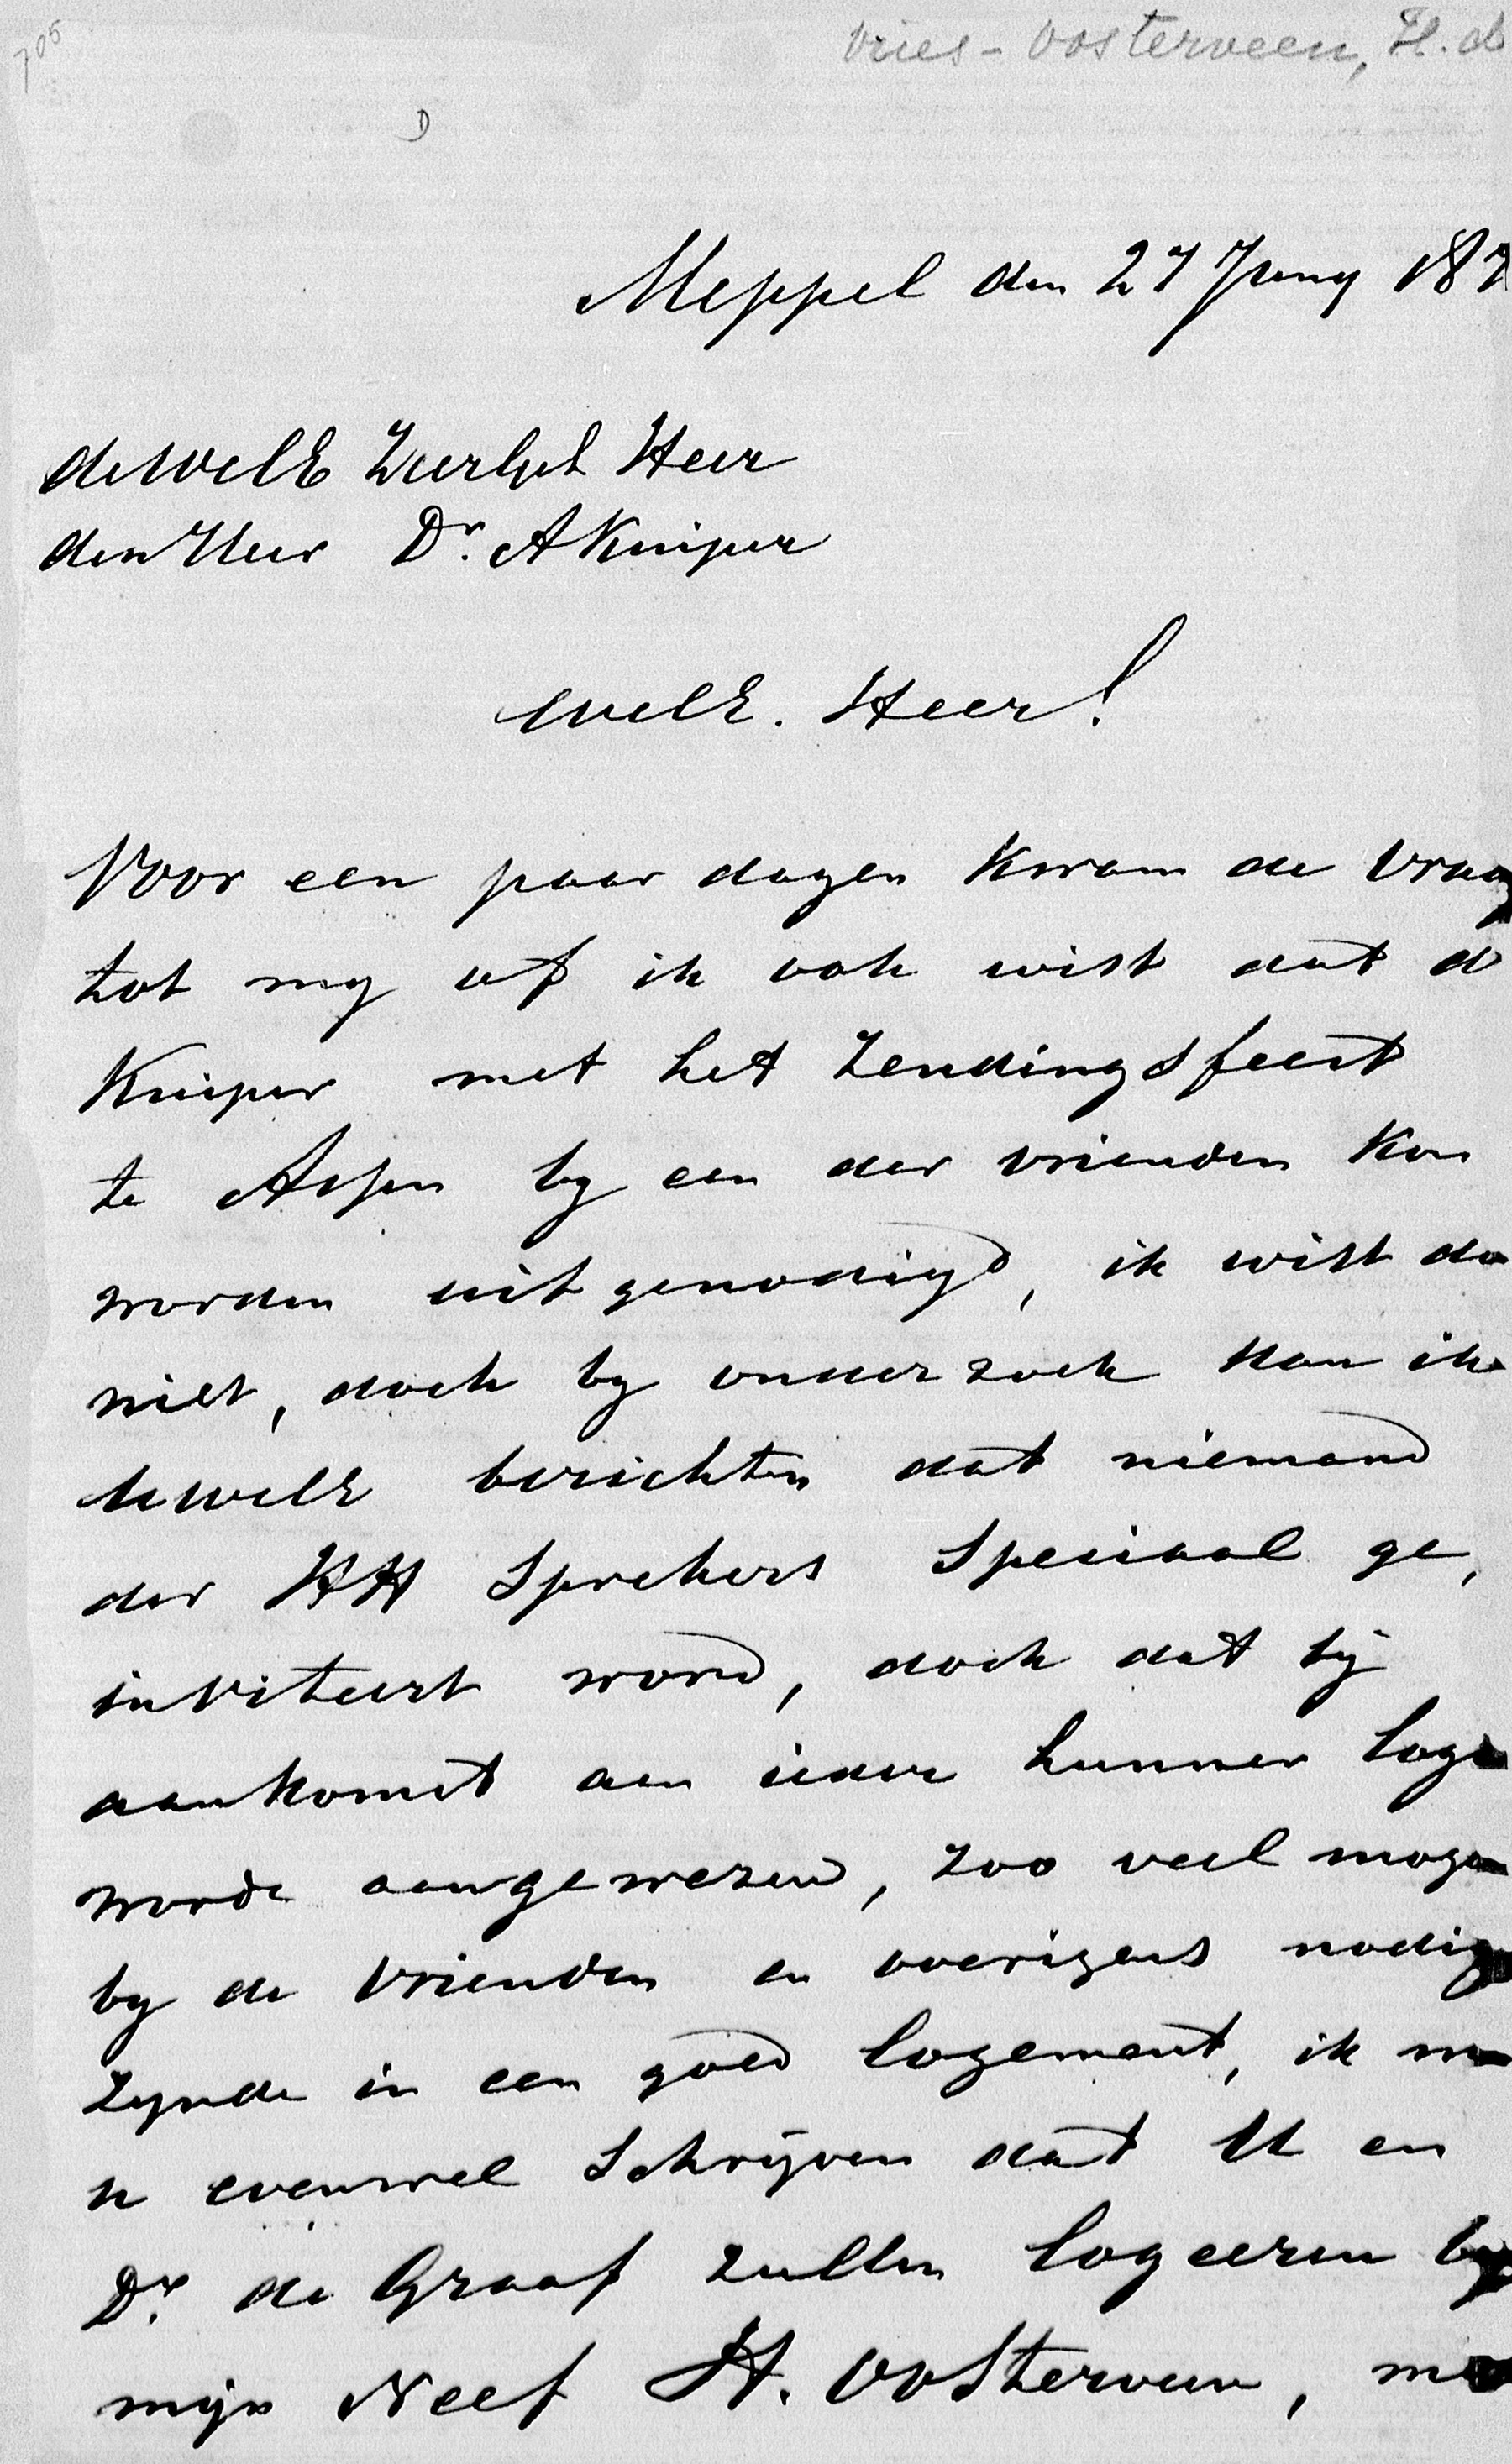 705
Vries-Oosterveen, H. d
D
Meppel den 27 Juny 187
de WelE Zeerlgel Heer
den Heer Dr. A Kuiper
WelE. Heer!
Voor een paar dagen kwam de vraag
tot my of ik ook wist dat d
Kuiper met het Zendingsfeest
te Assen by een der vrienden kon
worden uitgenodigd, ik wist da
niet, doch by onderzoek kan ik
UWelE berichten dat niemand
der HH Sprekers Speciaal ge,
inviteert word, doch dat bij
aankomst aan ieder hunner loge
worde aangewezen, zoo veel moge
by de vrienden en overigens nodig
zynde in een goed logement, ik m
u evenwel Schrijven dat U en
Dr. de Graaf zullen logeeren by
mijn Neef H. Oosterveen, me